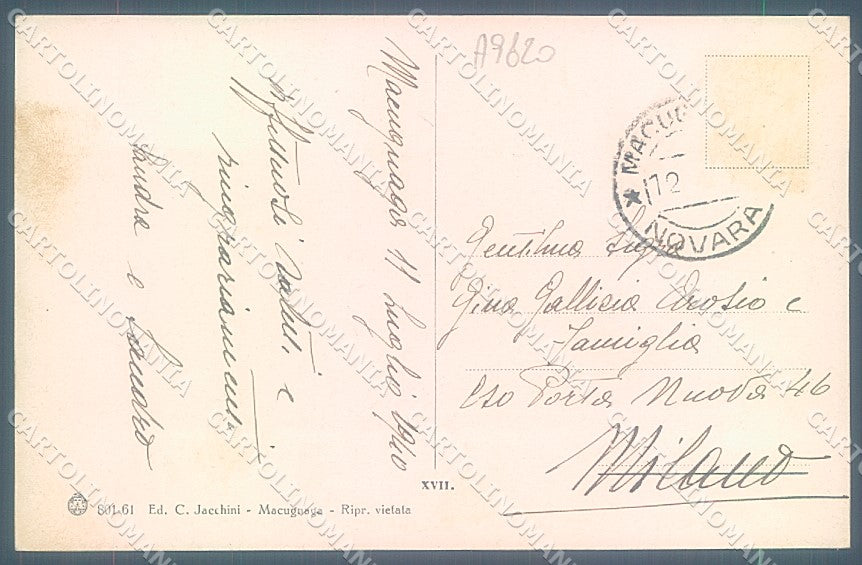 A9620
Macugnaga 11 Luglio 1940
Affettuosi saluti e
ringraziamenti
Sandra e Sandro
MACUG
17 2
NOVARA
Gent.lma Sig.ra
Gina Gallisia Orosio e
Famiglia
Cso Porta Nuova 46
Milano
XVII.
801-61 Ed. C. Jacchini - Macugnaga - Ripr. vietata
CARTOLINOMANIA